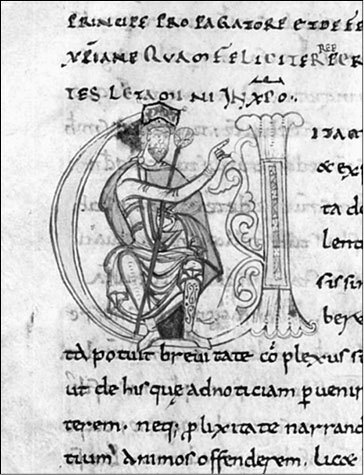 PRINCIPE PROPAGATORE ET DEFE
XPIANE QUAM FELICITER REPER
TES IN XPO.
ITA
& ex
ta de
lent
sissi
ber
tā potuit breuitate cōplexus
ut de his que ad noticiam peruenir
terem. neq; plixitate narrand
tium animos offenderem. licæ